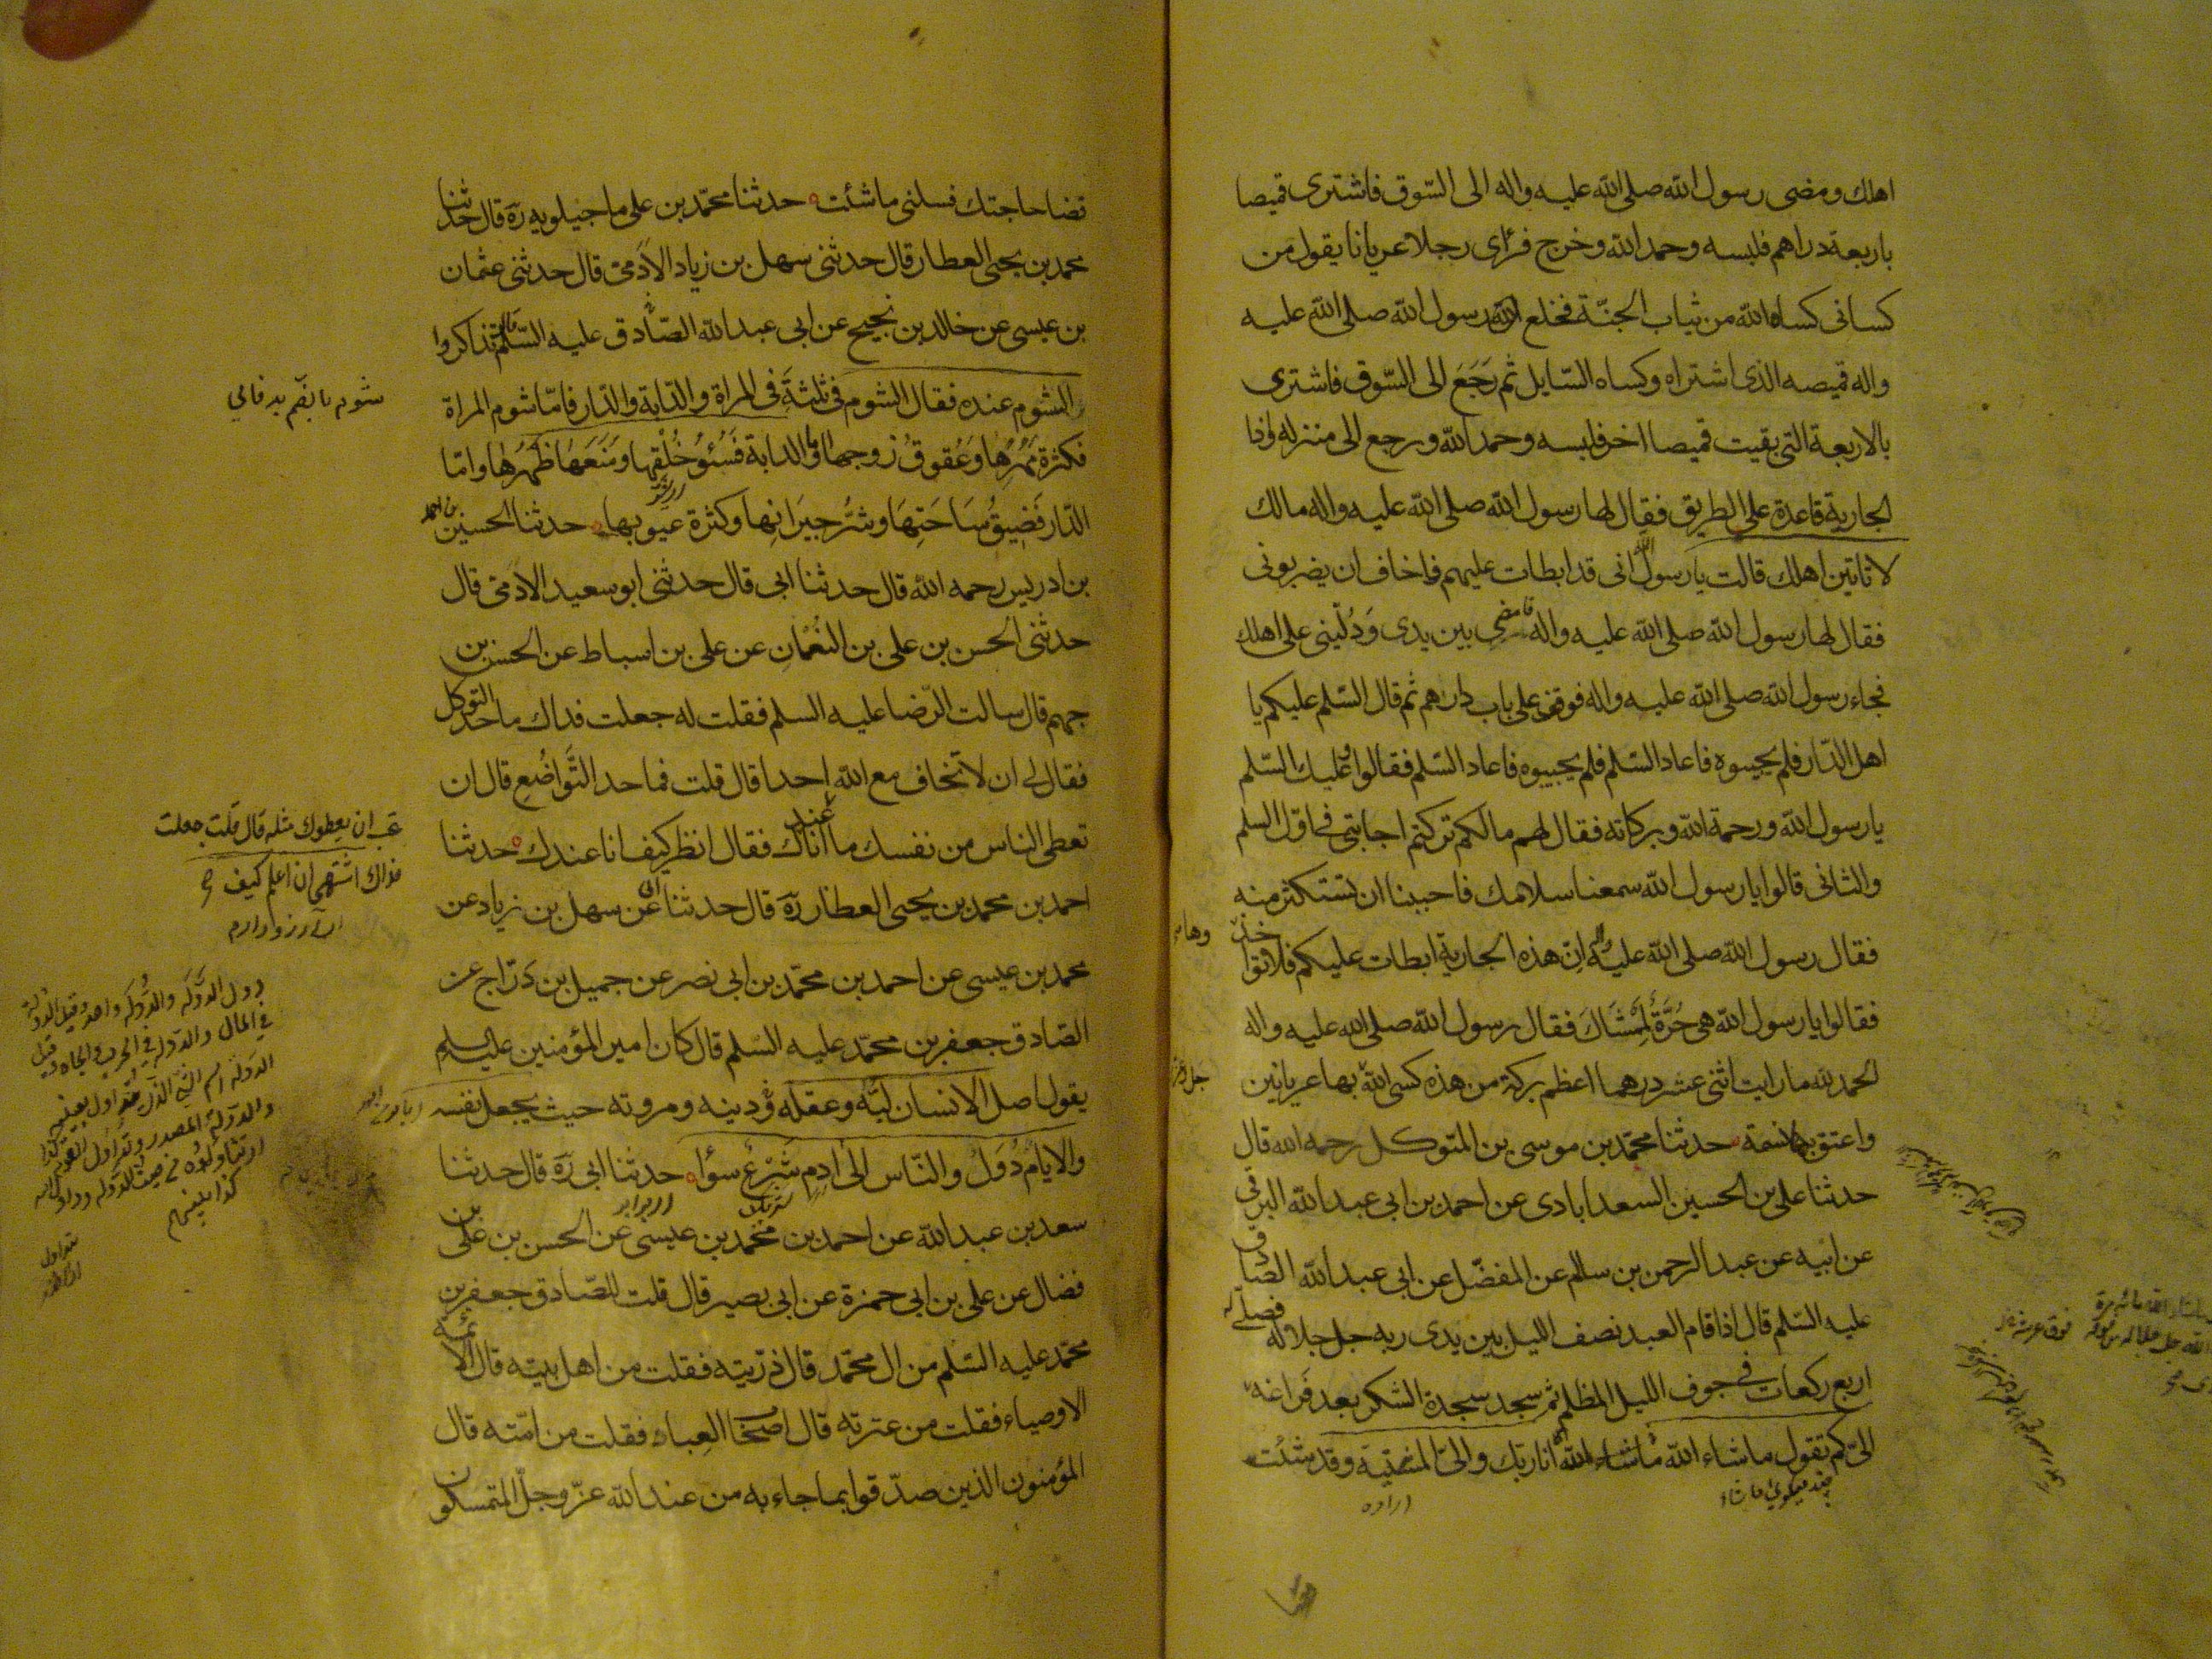 اهلك ومضى رسول الله صلى الله عليه واله الى السّوق فاشترى قميصا
باربعة دراهم فلبسه وحمد الله وخرج فرأى رجلا عريانا يقول من
كسانى كساه الله من ثياب الجنّة فخلع رسول الله صلى الله عليه
واله قميصه الذى اشتراه وكساه السّايل ثم رَجَعَ الى السّوق فاشترى
بالاربعة التى بقيت قميصا اخر فلبسه وحمد الله ورجع الى منزله واذا
الجارية قاعدة على الطريق فقال لها رسول الله صلى الله عليه واله مالك
لا تاتين اهلك قالت يا رسول الله انى قد ابطات عليهم فاخاف ان يضربونى
فقال لها رسول الله صلى الله عليه واله فامضى بين يدى وَدُلّينى على اهلك
فجاء رسول الله صلى الله عليه واله فوقف على باب دارهم ثم قال السّلم عليكم يا
اهل الدّار فلم يجيبوه فاعاد السّلم فلم يجيبوه فاعاد السّلم فقالوا وعليك السّلم
يا رسول الله ورحمة الله وبركاته فقال لهم مالكم تركتم اجابتى فى اوّل السلم
والثانى قالوا يا رسول الله سمعنا سلامك فاحببنا ان تستكثر منه
فقال رسول الله صلى الله عليه واله انّ هذه الجارية ابطات عليكم فلا تؤاخذ
وها
فقالوا يا رسول الله هى حُرَّةٌ لِمَمْشَاكَ فقال رسول الله صلى الله عليه واله
الحمد لله ما رايت اثنى عشر درهما اعظم بركة من هذه كسى الله بها عريانين
واعتق بها نسمة حدثنا محمّد بن موسى بن المتوكل رحمه الله قال
حدثنا على بن الحسين السعدابادى عن احمد بن ابى عبد الله البرقى
عن ابيه عن عبد الرحمن بن سالم عن المفضّل عن ابى عبد الله الصّادق
عليه السّلم قال اذا قام العبد نصف الليل بين يدى ربه جل جلاله فصلّى له
اربع ركعات فى جوف الليل المظلم ثم سجد سجدة الشكر بعد فَراغه
الىّ كم تقول ما شاء الله ما شاء الله انا ربّك والىّ المشيّة وقد شئت
قضا حاجتك فسلنى ما شئت حدثنا محمّد بن على ماجيلويه رَه قال حدثنا
محمد بن يحيى العطار قال حدثنى سهل بن زياد الادَمىّ قال حدثنى عثمان
بن عيسى عن خالد بن نجيح عن ابى عبد الله الصّادق عليه السّلم قال تذاكروا
الشوم عنده فقال الشوم فى ثلثة فى المراة والدّابة والدّار فامّا شوم المراة
فكثرة مَهْرِها وَعُقوقُ زوجها وامّا الدابة فَسُئوُ خُلْقِها ومَنَعَها ظَهرَها وامّا
الدّار فَضِيقُ سَاحَتِهَا وشرُّ جيرَانِها وكثرة عيوبها حدثنا الحسين بن احمد
بن ادريس رحمه الله قال حدثنا ابى قال حدثنى ابو سعيد الادمىّ قال
حدثنى الحسن بن على بن النُعْمانِ عن على بن اسباط عن الحسن بن
جهم قال سالت الرّضا عليه السلم فقلت له جعلت فداك ما حد التوكل
فقال لى ان لا تخاف مع الله احدا قال قلت فما حد التَّواضُع قال ان
تعطى الناس من نفسك ما فقال انظر كيف انا عندك حدثنا
احمد بن محمد بن يحيى العطار رَه قال حدثنا ابى عن سهل بن زياد عن
محمد بن عيسى عن احمد بن محمّد بن ابى نصر عن جميل بن دَرّاج عن
الصّادق جعفر بن محمّد عليه السّلم قال كان امير المؤمنين عليه السلم
يقول اصل الانسان لبّه وعقله ودينه ومروته حيث يجعل نفسه
والايام دُوَلٌ والنّاس الى ادم شَرَعٌ سؤا حدثنا ابى رَه قال حدثنا
سعد بن عبد الله عن احمد بن محمّد بن عيسى عن الحسن بن على بن
فضال عن على بن ابى حمزة عن ابى بصير قال قلت للصّادق جعفر بن
محمّد عليه السّلم من ال محمّد قال ذرّيته فقلت من اهل بيته قال الائمّة
الاوصياء فقلت من عترته قال اصحاب العباء فقلت من امّته قال
المؤمنون الذين صدّقوا بما جاء به من عند الله عزّ وجلّ المتمسكون
تحب ان يعطوك مثله قال قلت جعلت
فداك اشتهى ان اعلم كيف